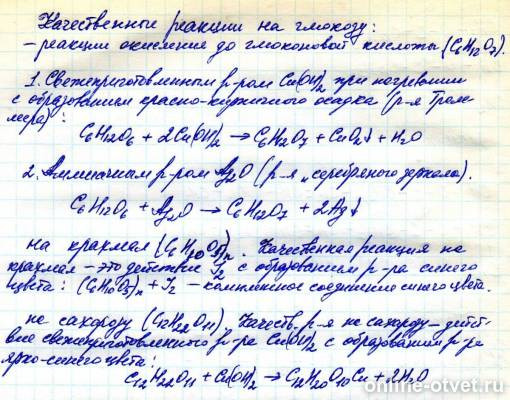 Качественные реакции на глюкозу:
- реакции окисления до глюконовой кислоты (C6H12O7).
1. Свежеприготовленным р-ром Cu(OH)2 при нагревании
с образованием красно-кирпичного осадка (р-я Трам-
мера):
C6H12O6 + 2Cu(OH)2 → C6H12O7 + CuO2↓ + H2O
2. Аммиачным р-ром Ag2O (р-я „серебряного зеркала).
C6H12O6 + Ag2O → C6H12O7 + 2Ag↓
на крахмал (C6H10O5)n. Качественная реакция на
крахмал - это действие I2 с образованием р-ра синего
цвета: (C6H10O5)n + I2 - комплексное соединение синего цвета.
на сахарозу (C12H22O11). Качеств. р-я на сахарозу - дейст-
вие свежеприготовленного р-ра Cu(OH)2 с образованием р-ра
ярко-синего цвета:
C12H22O11 + Cu(OH)2 → C12H20O10Cu + 2H2O
online-otvet.ru